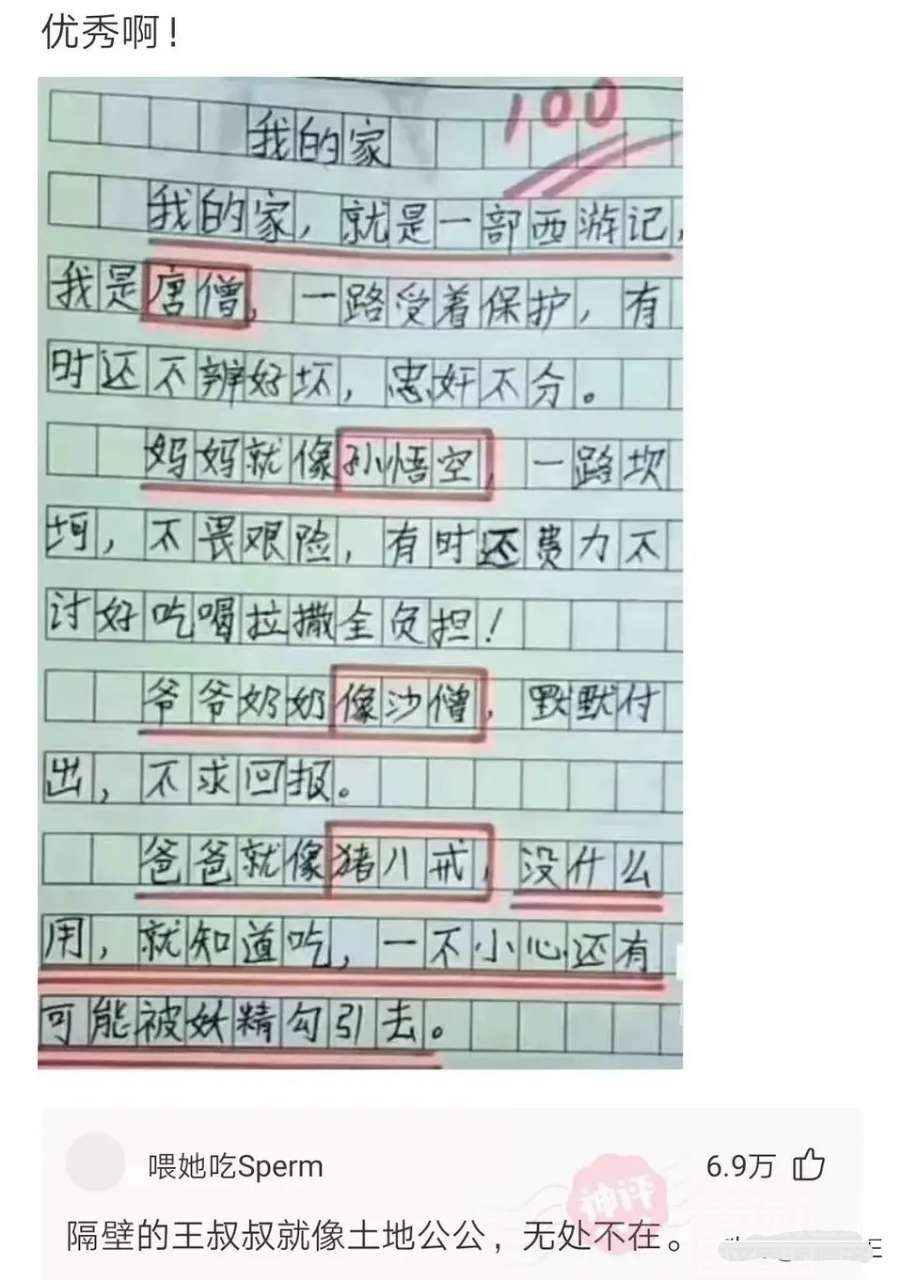 优秀啊!
我的家
100
我的家，就是一部西游记，
我是唐僧，一路受着保护，有
时还不辨好坏，忠奸不分。
妈妈就像孙悟空，一路坎
坷，不畏艰险，有时还费力不
讨好吃喝拉撒全负担！
爷爷奶奶像沙僧，默默付
出，不求回报。
爸爸就像猪八戒，没什么
用，就知道吃，一不小心还有
可能被妖精勾引去。
喂她吃Sperm
6.9万
神评
隔壁的王叔叔就像土地公公，无处不在。